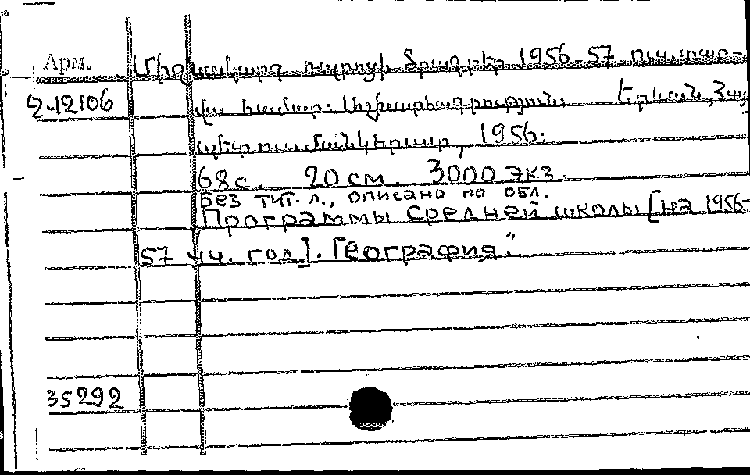 Арм. Միջնակարգ դպրոցի ծրագրեր 1956-57 ուս. տար-
2-12106 վա համար: Աշխարհագրություն Երևան, Հայ
պետուսմանկհրատ, 1956.
68 с. 20 см. 3000 экз.
Без тит. л., описано по обл.
Программы средней школы [на 1956-
57 уч. год]. География."
35292